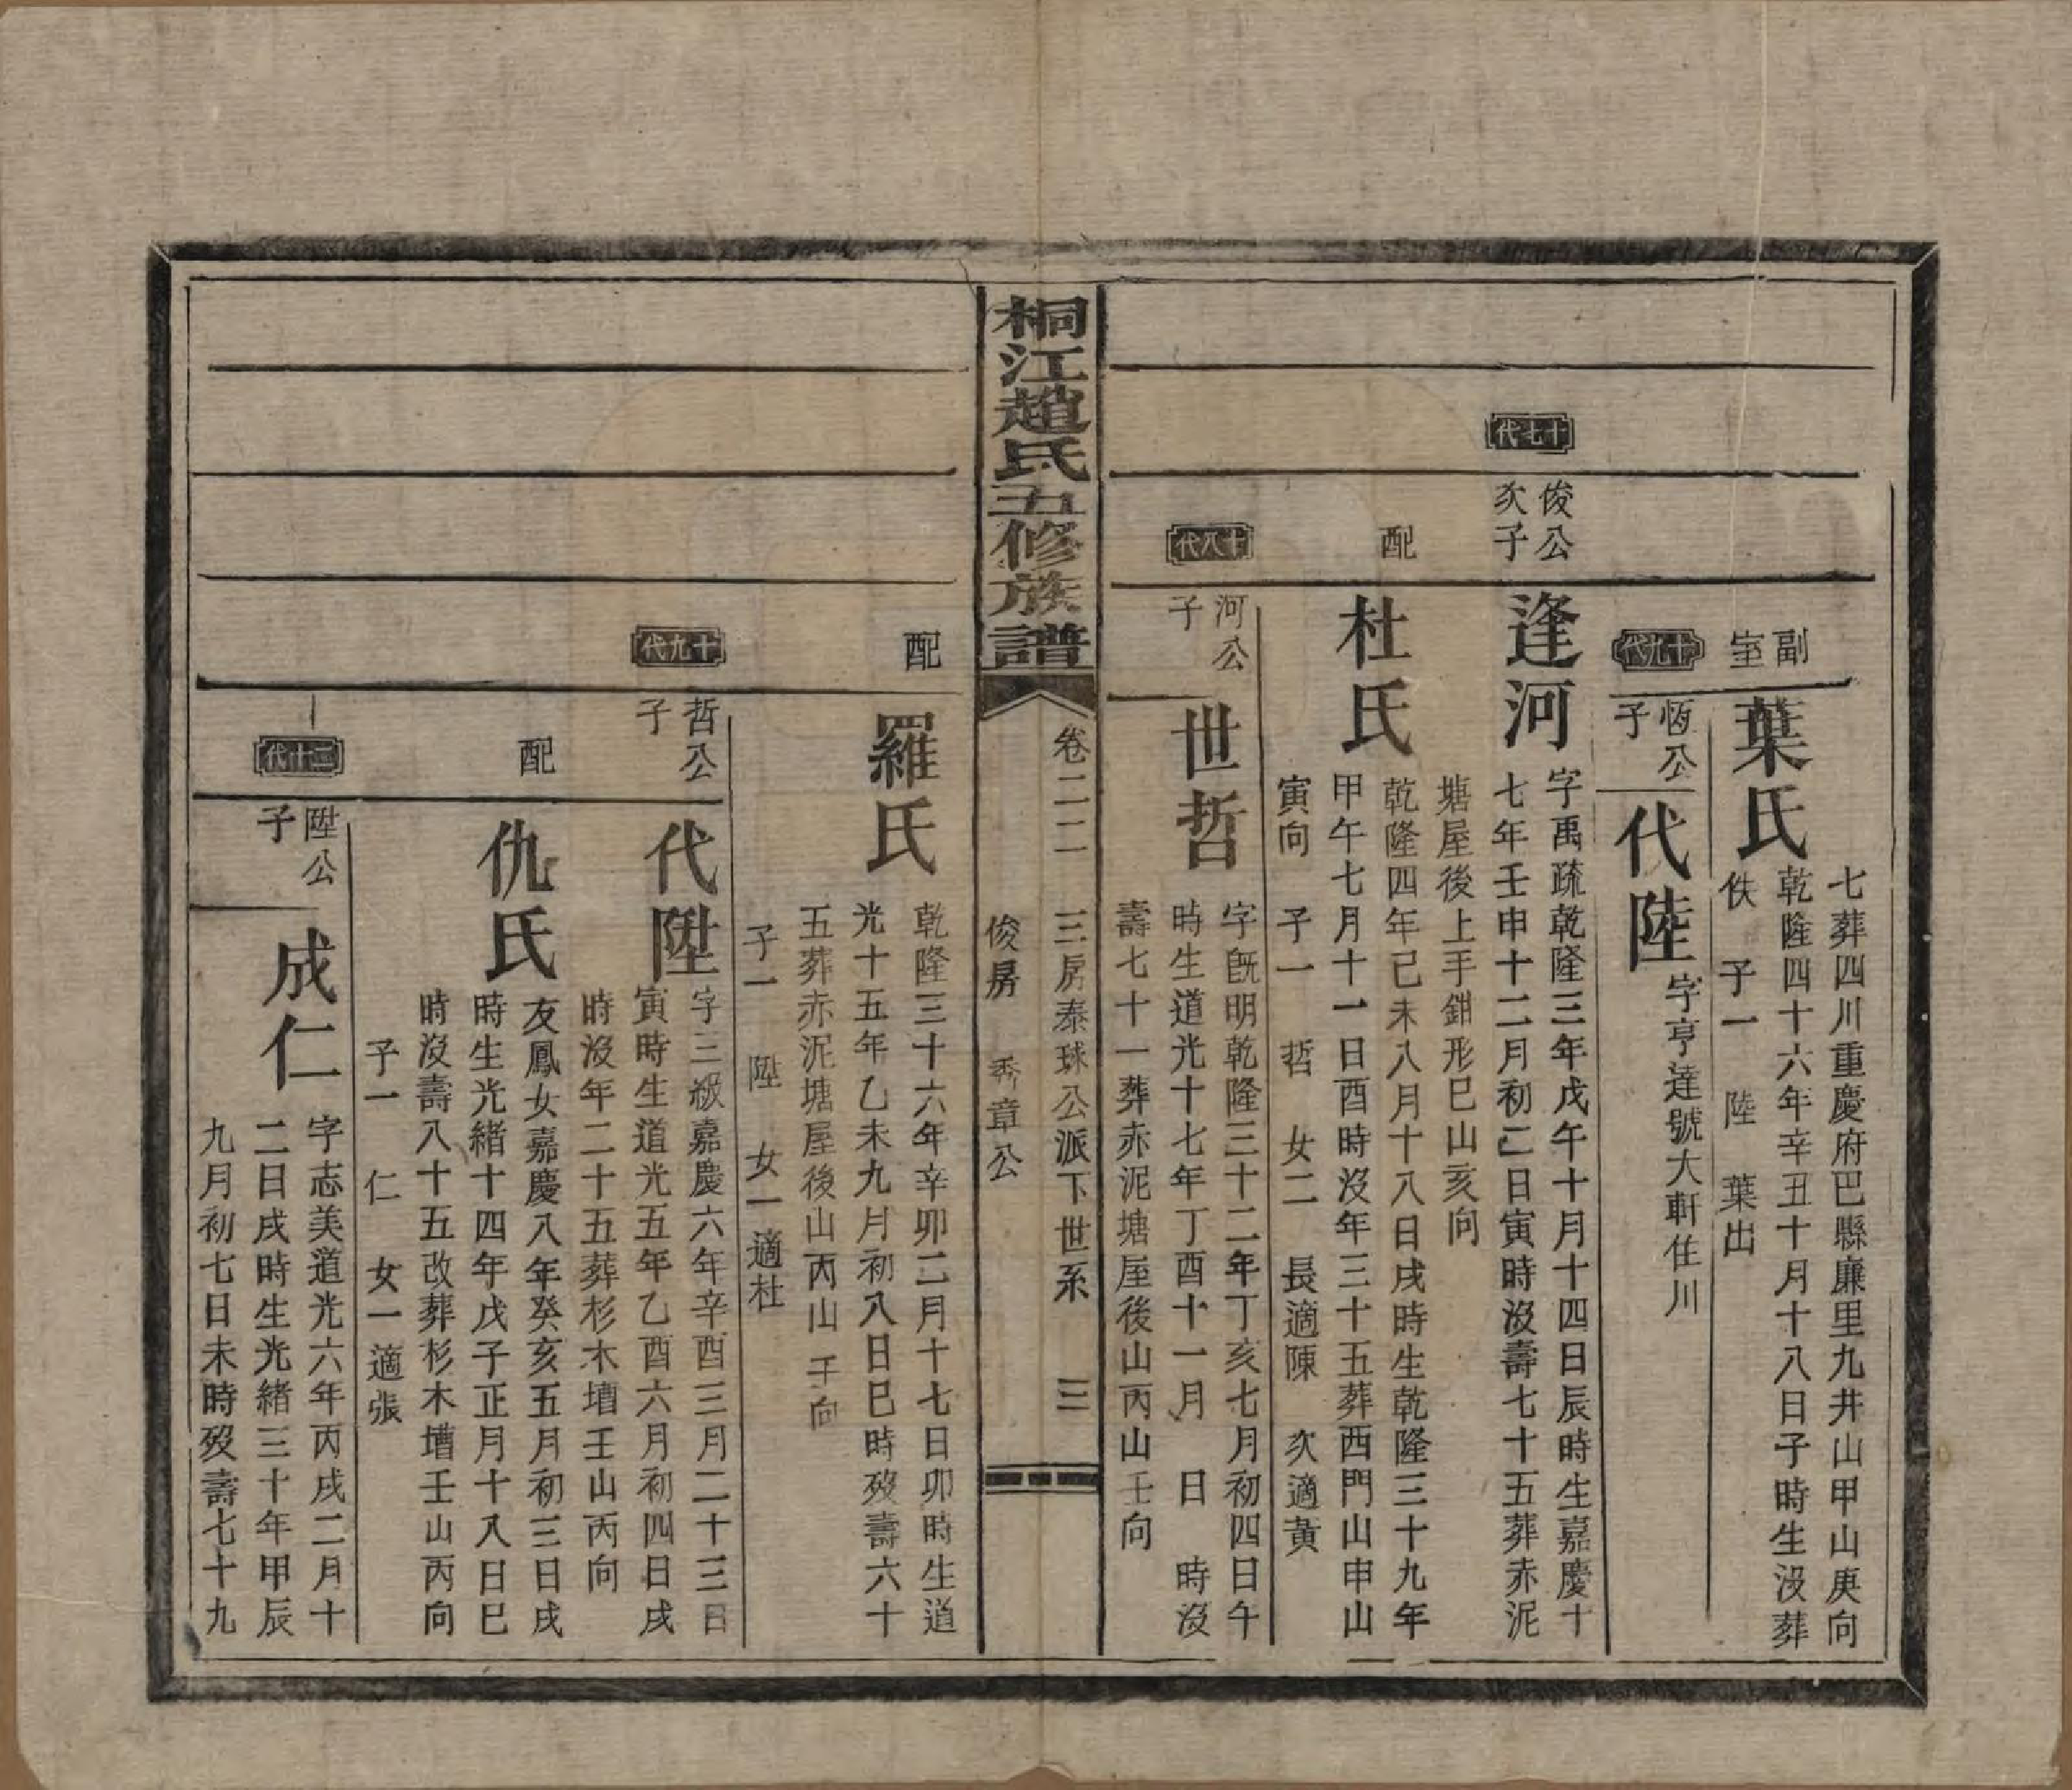 七葬四川重慶府巴縣廉里九井山甲山庚向
副室
葉氏
乾隆四十六年辛丑十月十八日子時生没葬
佚 子一 陸 葉出
十九代
恆公子
代陸
字亨達號大軒住川
十七代
俊公次子
逢河
字禹疏乾隆三年戊午十月十四日辰時生嘉慶十
七年壬申十二月初二日寅時没壽七十五葬赤泥
塘屋後上手鉗形巳山亥向
配
杜氏
乾隆四年己未八月十八日戌時生乾隆三十九年
甲午七月十一日酉時没年三十五葬西門山申山
寅向 子一 哲 女二 長適陳 次適黃
十八代
河公子
世哲
字旣明乾隆三十二年丁亥七月初四日午
時生道光十七年丁酉十一月 日 時没
壽七十一葬赤泥塘屋後山丙山壬向
桐江趙氏五修族譜
卷二二 三房泰球公派下世系 三
俊房 秀章公
配
羅氏
乾隆三十六年辛卯二月十七日卯時生道
光十五年乙未九月初八日巳時歿壽六十
五葬赤泥塘屋後山丙山壬向
子一 陞 女一適杜
十九代
哲公子
代陞
字三級嘉慶六年辛酉三月二十三日
寅時生道光五年乙酉六月初四日戌
時没年二十五葬杉木壋壬山丙向
配
仇氏
友鳳女嘉慶八年癸亥五月初三日戌
時生光緒十四年戊子正月十八日巳
時没壽八十五改葬杉木壋壬山丙向
子一 仁 女一適張
二十代
陞公子
成仁
字志美道光六年丙戌二月十
二日戌時生光緒三十年甲辰
九月初七日未時歿壽七十九